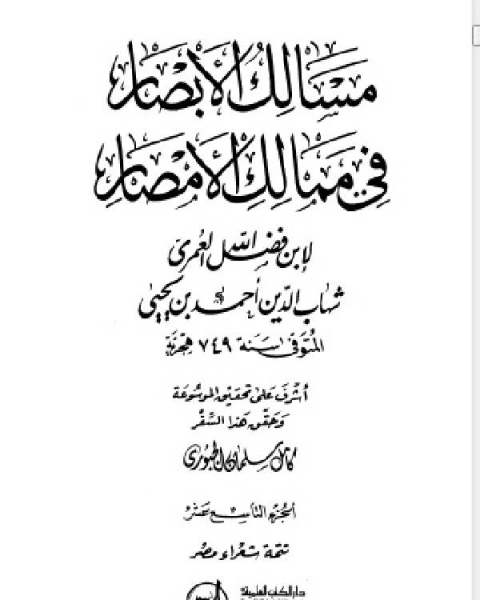 مَسَالِكُ الأَبْصَار
فِي مَمَالِكِ الأَمْصَارِ
لابن فضل الله العمري
شهاب الدين أحمد بن يحيى
المتوفى سنة ٧٤٩ هجرية
أشرف على تحقيق الموسوعة
وحقق هذا السفر
كامل سلمان الجبوري
الجزء التاسع عشر
تتمة شعراء مصر
دار الكتب العلمية